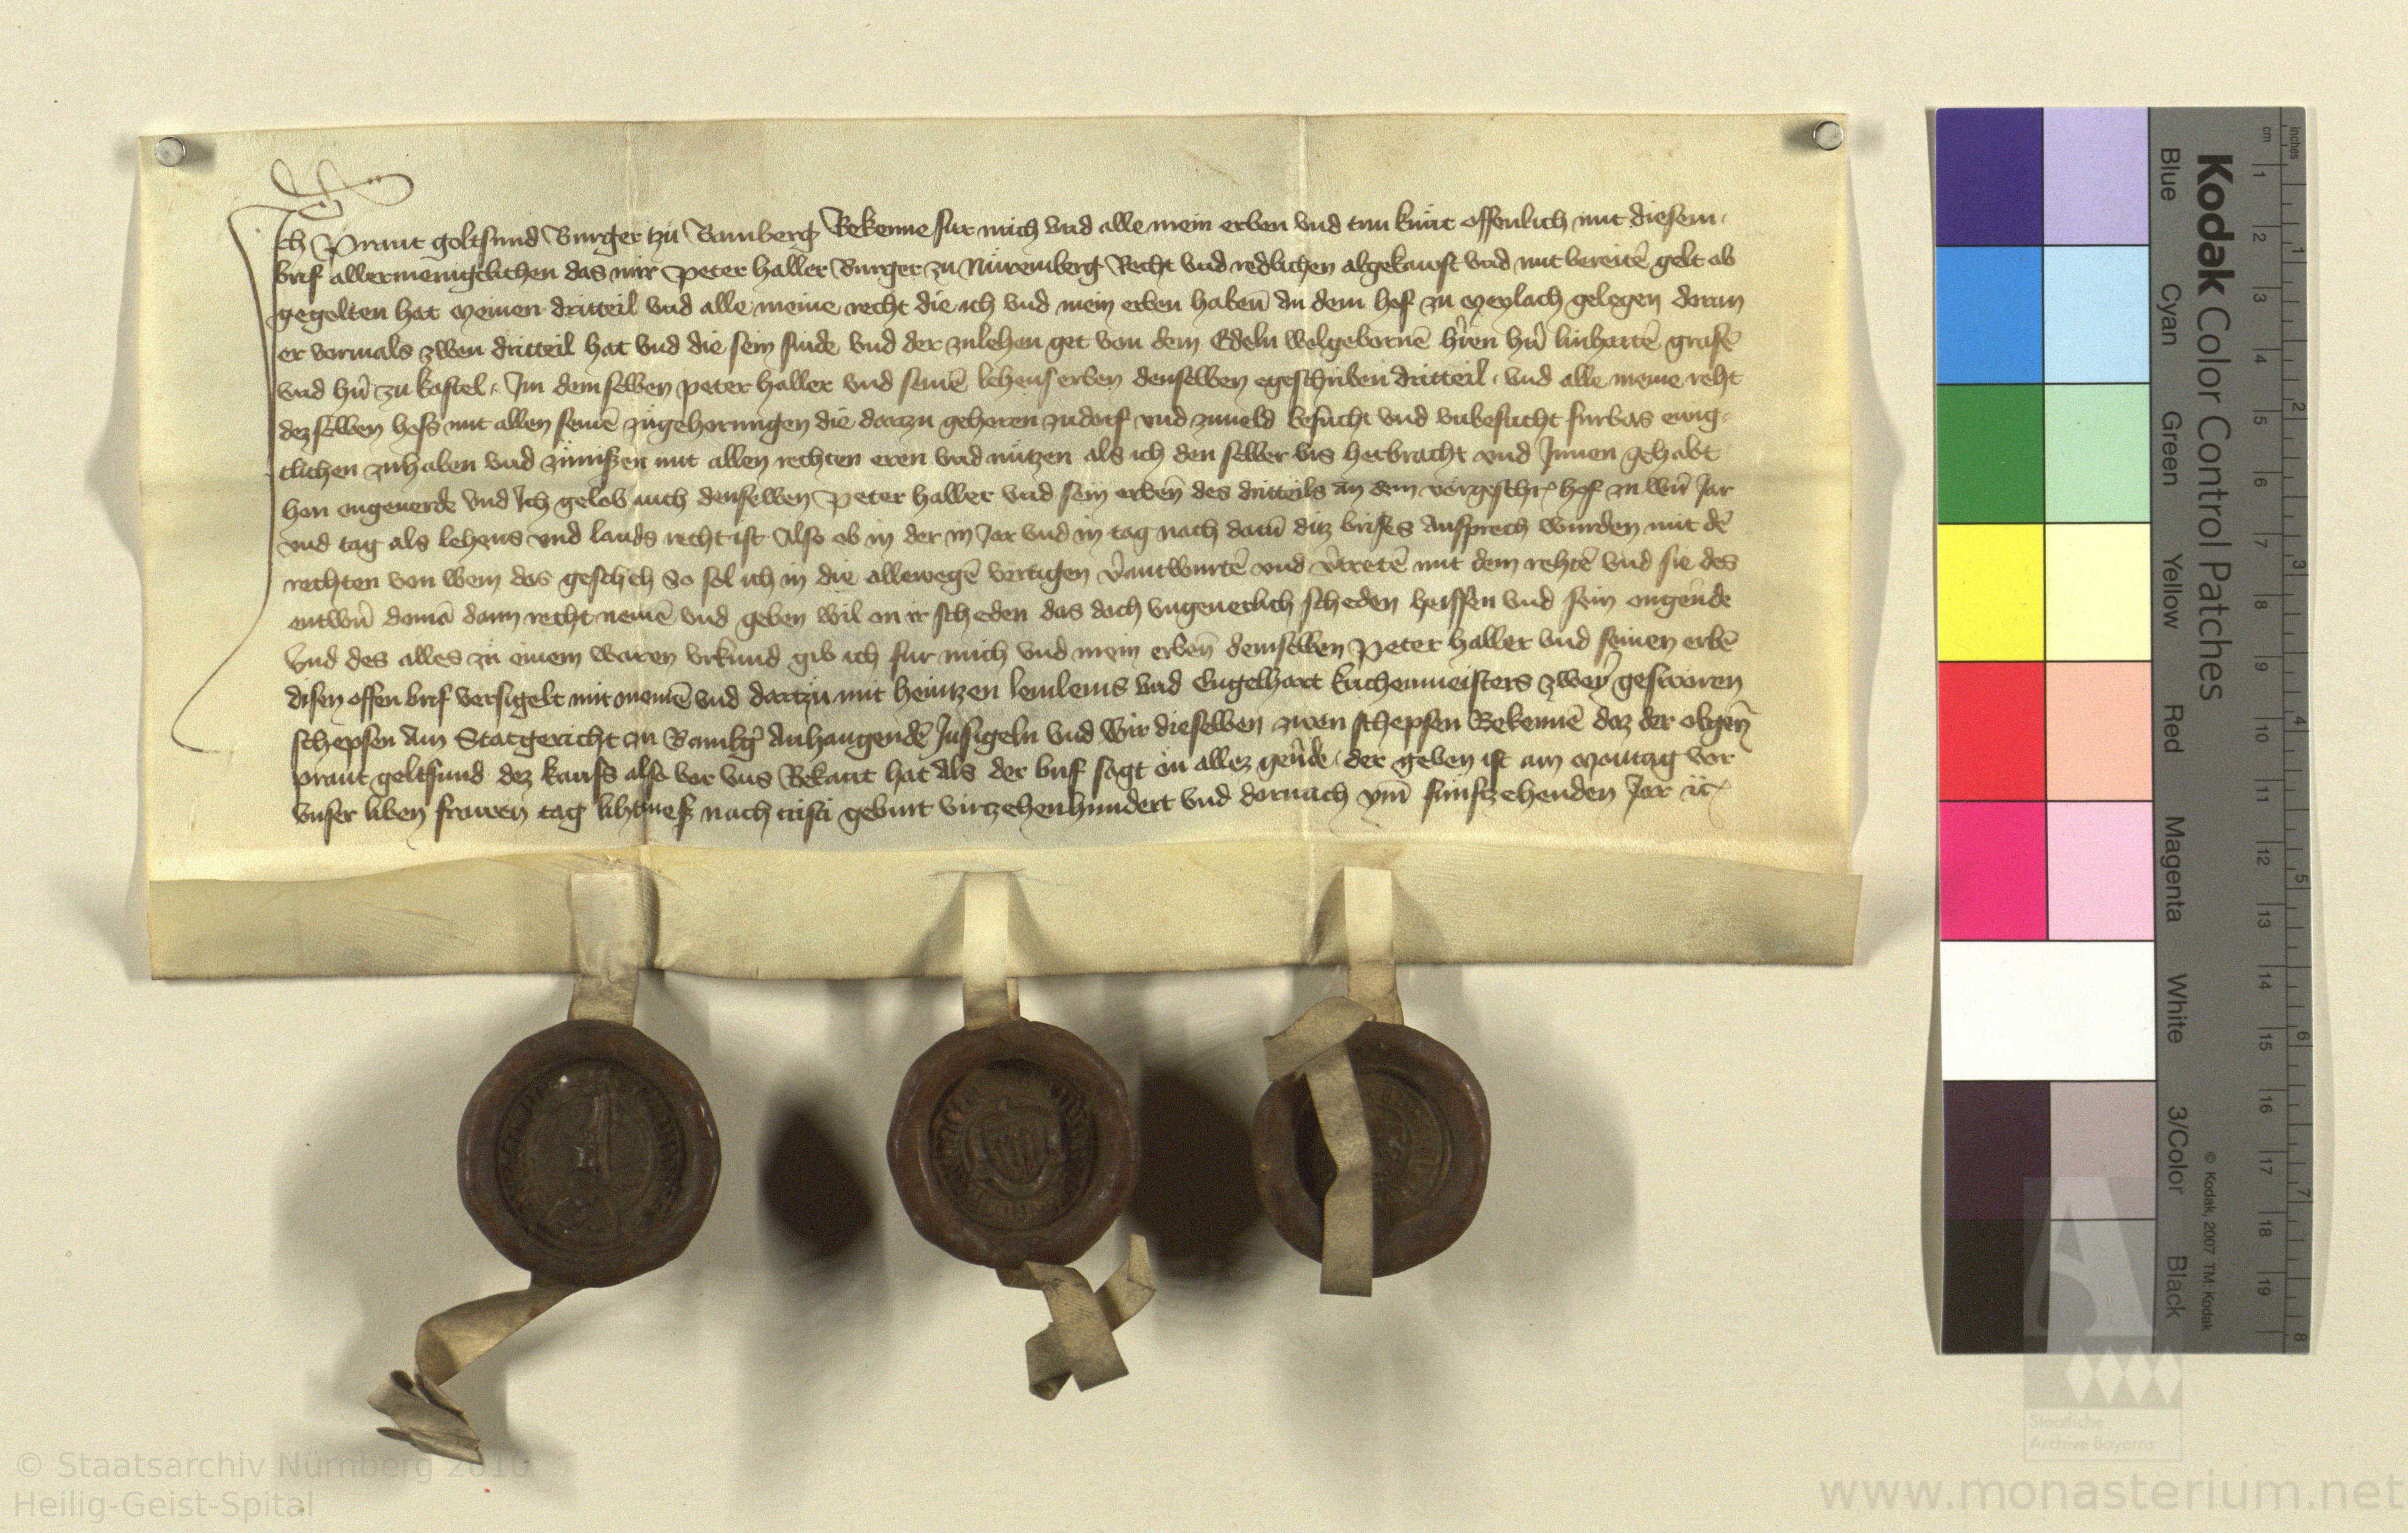 Ich Praut goltsmid Burger tzu Bamberg Bekenne fur mich vnd alle mein erben vnd tun kunt offenlich mit diesem
brif allermeniclichen das mir Peter haller Burger zu Nuremberg Recht vnd redlichen abgekauft vnd mit bereitē gelt ab
gegolten hat meinen dritteil vnd alle meine recht die ich vnd mein erben habeñ an dem hof zu meylach gelegen doran
er vormals zwen dritteil hat vnd die sein sinde vnd der zulehen get von dem Edeln wolgebornē hr̄en hr̄n linhartē grafē
vnd hr̄n zu kastel Im demselben peter haller vnd seinē lehenserben denselben egeschriben dritteil vnd alle meine reht
dezselben hofs mit allen seinē zugehorungen die dartzu gehoren zudorf vnd zuueld besucht vnd vnbesucht furbas ewig
clichen zuhaben vnd zunutzen mit allen rechten eren vnd nutzen als ich den selber bis herbracht vnd Innen gehabt
hon ongeuerde vnd Ich gelob auch denselben Peter haller vnd sein erbeñ des dritteils an dem vorgeschr hof zu wern Jar
vnd tag als lehens vnd lands recht ist Also ob in der in Jar vnd in tag nach datū ditz brifes Ansprech wurden mit dē
rechten von wem das gescheh So sol ich in die allewegē vertigen v̄antwurtē vnd v̄tretē mit dem rehtē vnd sie des
entwern domā dann recht nemē vnd geben wil on ir scheden das doch vngeuerlich scheden heissen vnd sein ongeūde
Vnd des alles zu einem waren Vrkund gib ich fur mich vnd mein erbeñ demselben Peter haller vnd seinen erbē
disen offen brif versigelt mit meinē vnd dartzu mit heintzen lemleins vnd Engelhart kuchenmeisters zweyr gesworen
schepfen Am Statgericht zu Bambg Anhangendē Insigeln vnd Wir dieselben zwen schepfen Bekennē daz der obgeñ
praut goltsmid dez kaufs also vor vns Bekant hat Als der brif sagt on allez geūde der geben ist am montag vor
vnser liben frawen tag lihtmeß nach cristi geburt virzehenhundert vnd dornach ym funftzehenden Jar
Kodak Color Control Patches
Blue
Cyan
Green
Yellow
Red
Magenta
White
3/Color
Black
© Kodak, 2007 TM: Kodak
cm
1 2 3 4 5 6 7 8 9 10 11 12 13 14 15 16 17 18 19
inches
1 2 3 4 5 6 7 8
© Staatsarchiv Nürnberg 2010
Heilig-Geist-Spital
Staatliche
Archive Bayerns
www.monasterium.net